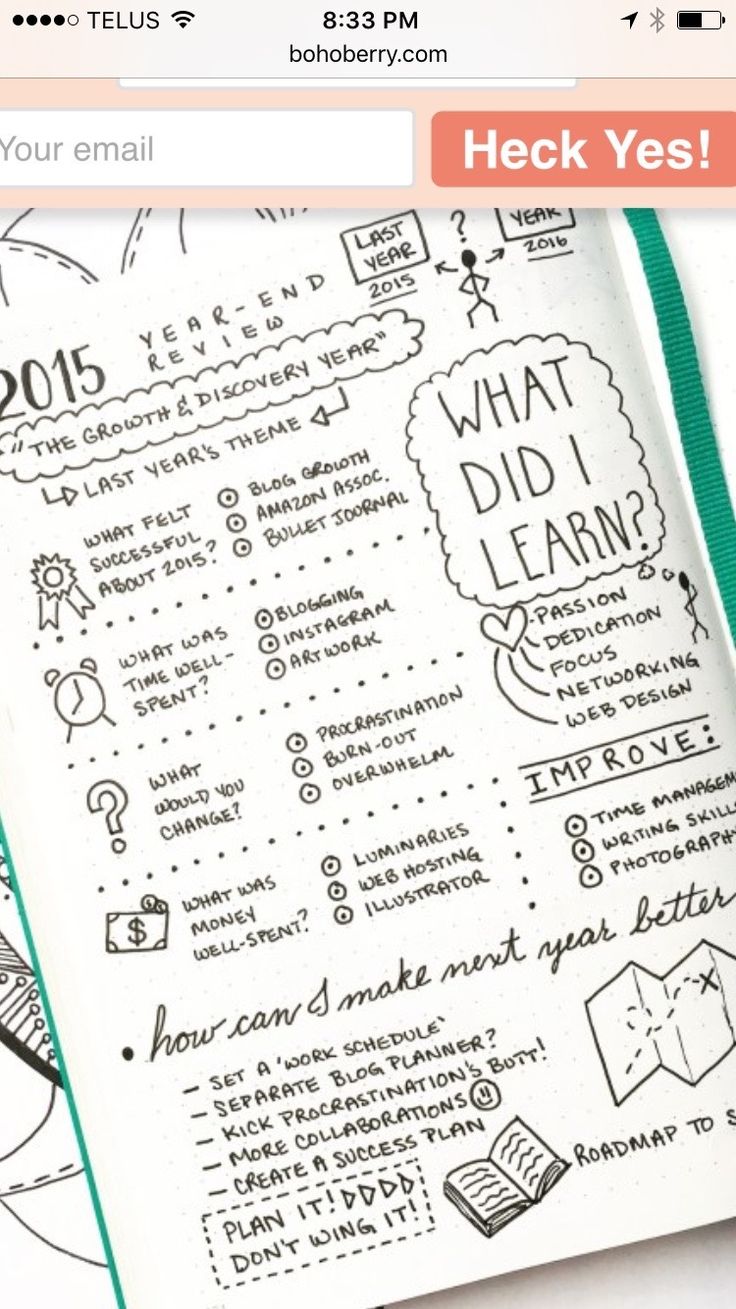 TELUS 8:33 PM
bohoberry.com
Your email
Heck Yes!
LAST
YEAR
2015
?
YEAR
2016
2015
YEAR-END
REVIEW
"THE GROWTH & DISCOVERY YEAR"
LAST YEAR'S THEME
WHAT FELT
SUCCESSFUL
ABOUT 2015?
BLOG GROWTH
AMAZON ASSOC.
BULLET JOURNAL
WHAT WAS
TIME WELL-
SPENT?
BLOGGING
INSTAGRAM
ARTWORK
?
WHAT
WOULD YOU
CHANGE?
PROCRASTINATION
BURN-OUT
OVERWHELM
$
WHAT WAS
MONEY
WELL-SPENT?
LUMINARIES
WEB HOSTING
ILLUSTRATOR
WHAT
DID I
LEARN?
-PASSION
DEDICATION
FOCUS
NETWORKING
WEB DESIGN
IMPROVE:
TIME MANAGEM
WRITING SKILL
PHOTOGRAPHY
• how can I make next year better
- SET A 'WORK SCHEDULE'
- SEPARATE BLOG PLANNER?
- KICK PROCRASTINATION'S BUTT!
- MORE COLLABORATIONS
- CREATE A SUCCESS PLAN
PLAN IT!
DON'T WING IT!
X
ROADMAP TO S